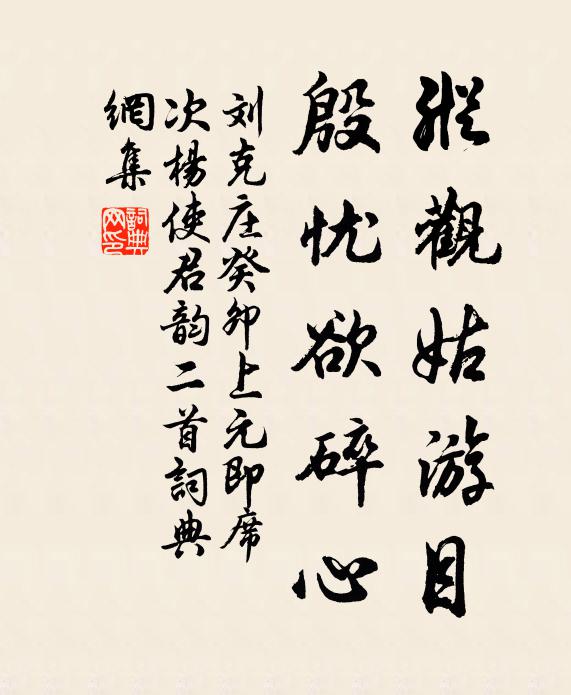 縱觀姑游目
殷忧欲碎心
刘克庄癸卯上元即席
次楊使君韵二首詞典
網集
詞典网印